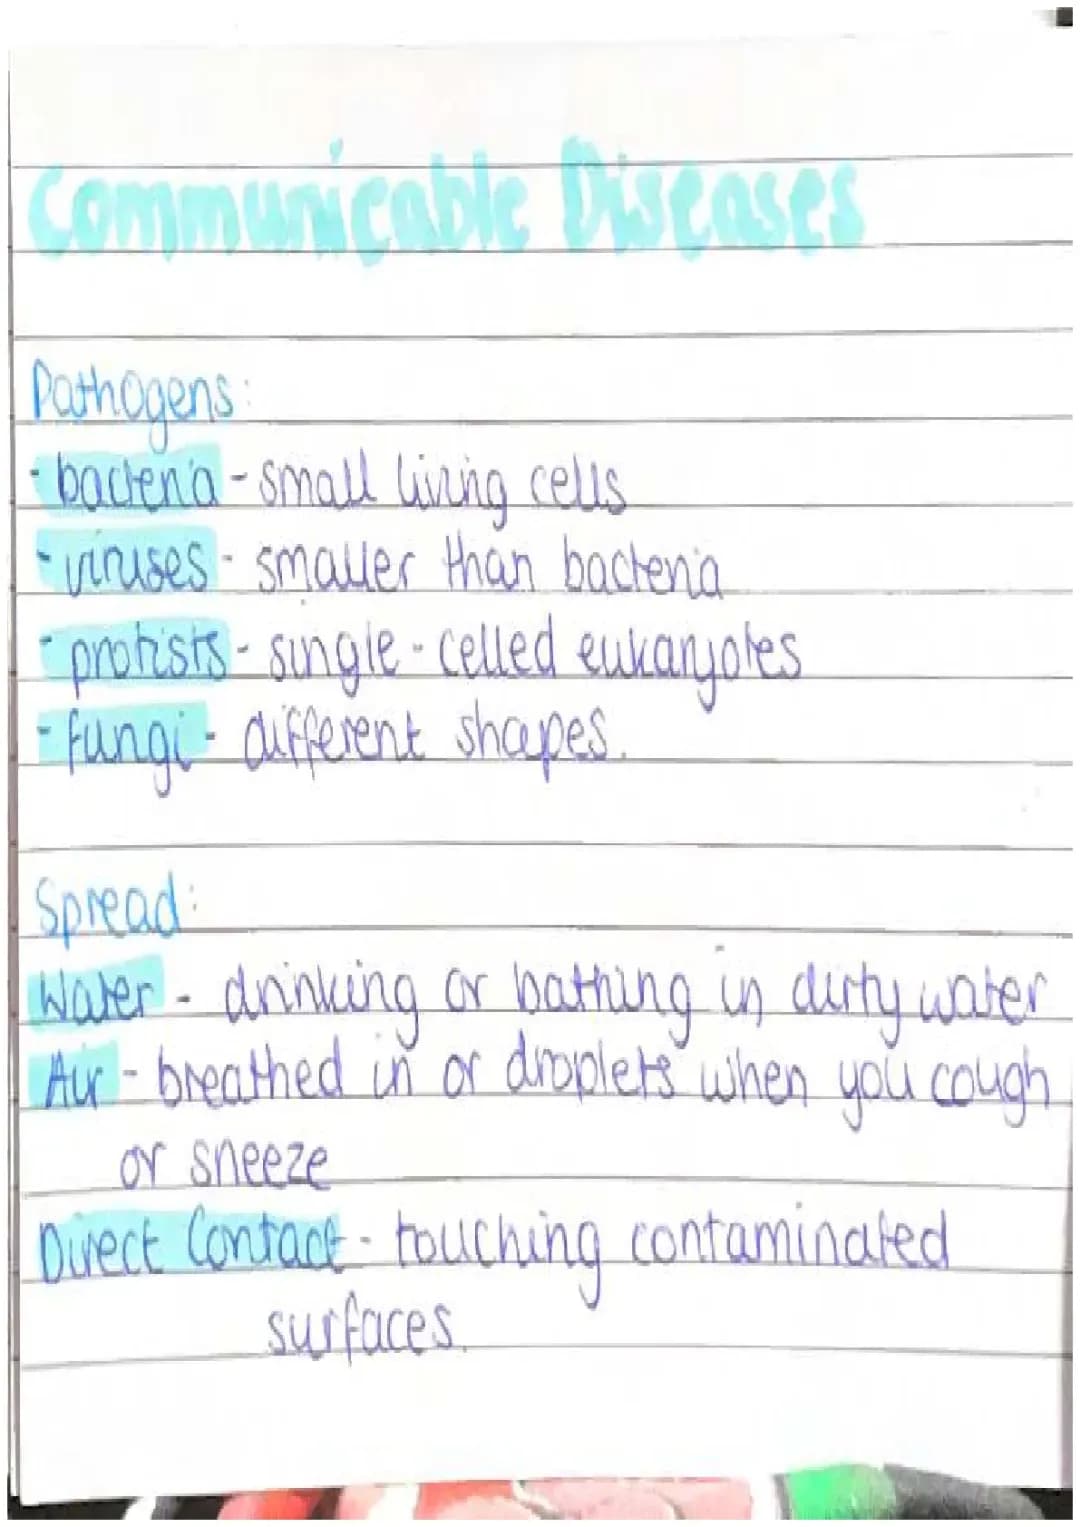 Communicable Diseases
Pathogens:
- bacteria - small living cells
- viruses - smaller than bacteria
- protists - single-celled eukaryotes
- fungi - different shapes.
Spread:
Water - drinking or bathing in dirty water
Air - breathed in or droplets when you cough
or sneeze
Direct Contact - touching contaminated
surfaces.